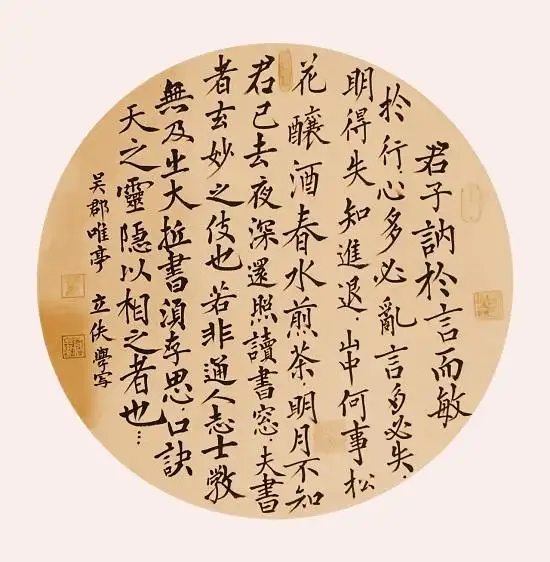 君子訥於言而敏
於行.心多必亂言多必失.
明得失知進退.山中何事松
花釀酒春水煎茶.明月不知
君已去夜深還照讀書窓.夫書
者玄妙之伎也若非通人志士斆
無及㞢大抵書須存思.口訣
天之靈隱以相之者也…
吳郡唯亭 立伕學写